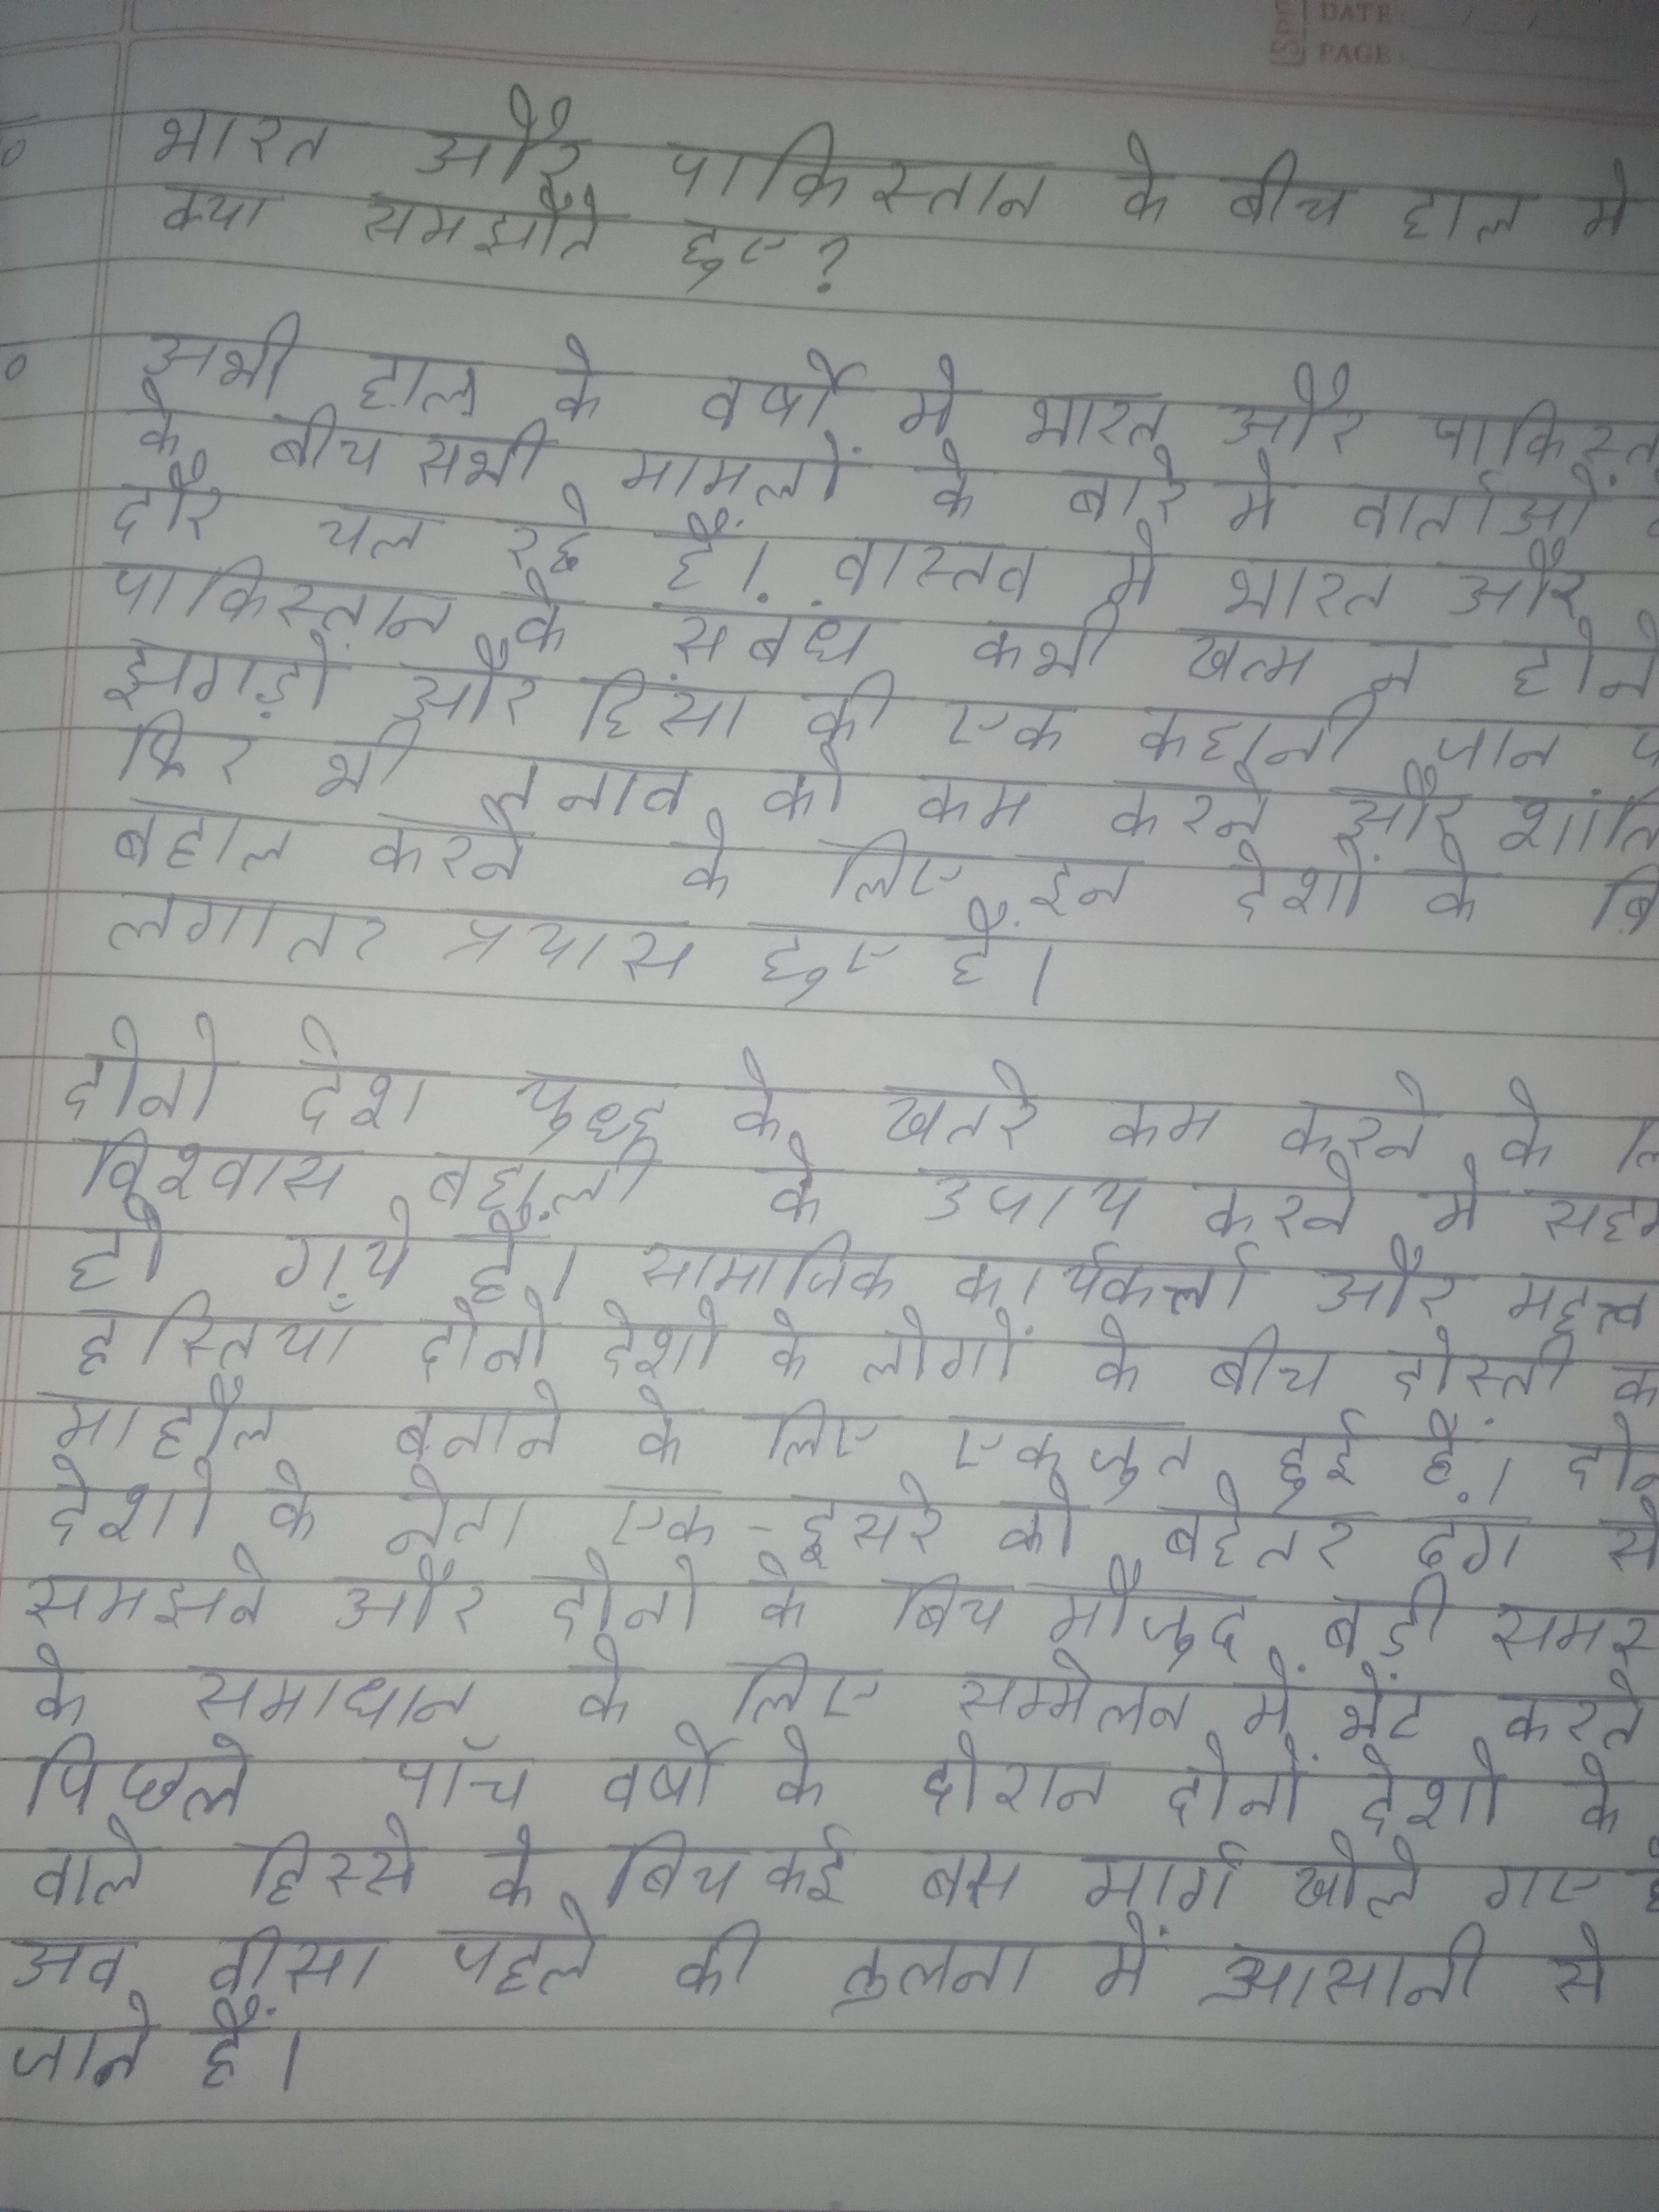 DATE: / /
PAGE:
भारत और पाकिस्तान के बीच हाल मे
क्या समझौते हुए?
अभी हाल के वर्षों मे भारत और पाकिस्त
के बीच सभी मामलों के बारे मे वार्ताओं
दौर चल रहे हैं। वास्तव मे भारत और
पाकिस्तान के संबंध कभी खत्म न होने
झगड़ों और हिंसा की एक कहानी जान प
फिर भी तनाव को कम करने और शांति
बहाल करने के लिए इन देशों के बि
लगातर प्रयास हुए हैं।
दोनो देश युध्द के खतरे कम करने के लि
विश्वास बहाली के उपाय करने मे सहम
हो गये हैं। सामाजिक कार्यकर्त्ता और महत्त्व
हस्तियाँ दोनो देशो के लोगों के बीच दोस्ती का
माहौल बनाने के लिए एकजुत हुई हैं। दोन
देशो के नेता एक-दूसरे को बहेतर ढंग से
समझने और दोनो के बिच मौजुद बड़ी समस
के समाधान के लिए सम्मेलन में भेंट करते
पिछले पाँच वर्षों के दोरान दोनों देशो के
वाले हिस्से के बिच कई बस मार्ग खोले गए है
अब वीसा पहले की तुलना में आसानी से
जाने हैं।